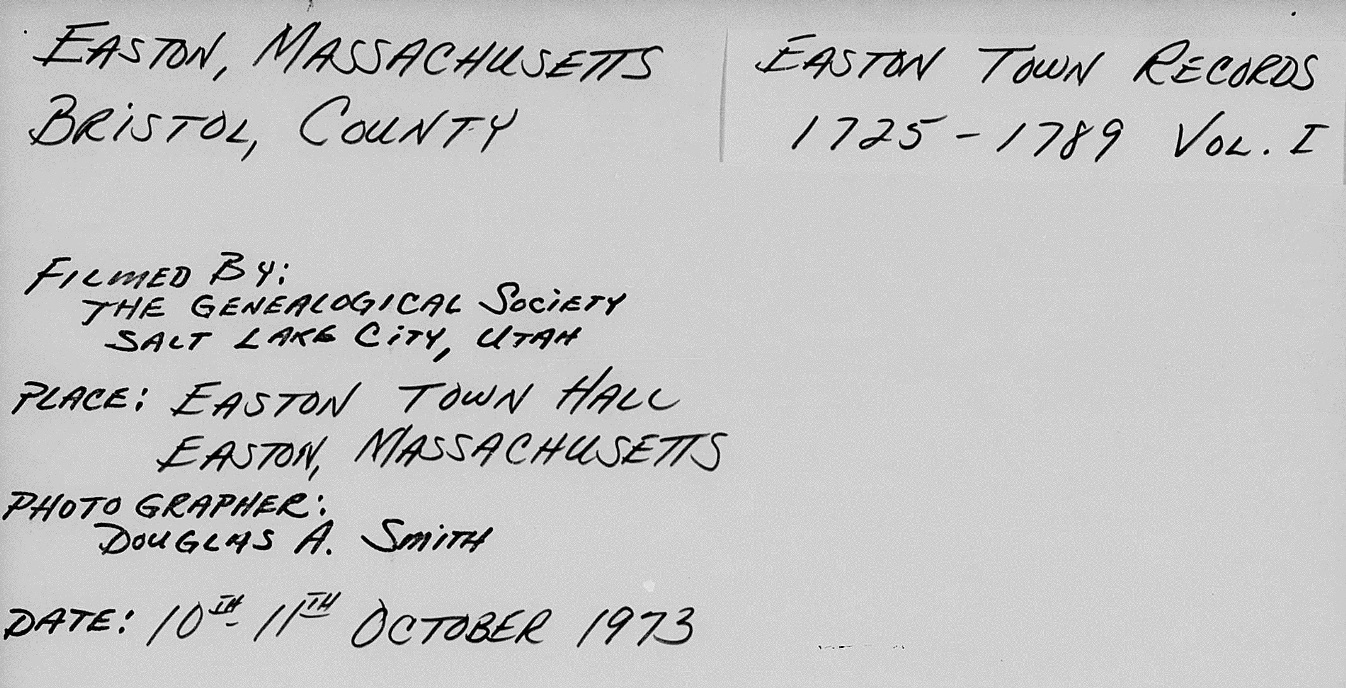 EASTON, MASSACHUSETTS
BRISTOL, COUNTY
EASTON TOWN RECORDS
1725-1789 VOL. I
FILMED BY:
THE GENEALOGICAL SOCIETY
SALT LAKE CITY, UTAH
PLACE: EASTON TOWN HALL
EASTON, MASSACHUSETTS
PHOTOGRAPHER:
DOUGLAS A. SMITH
DATE: 10TH-11TH OCTOBER 1973